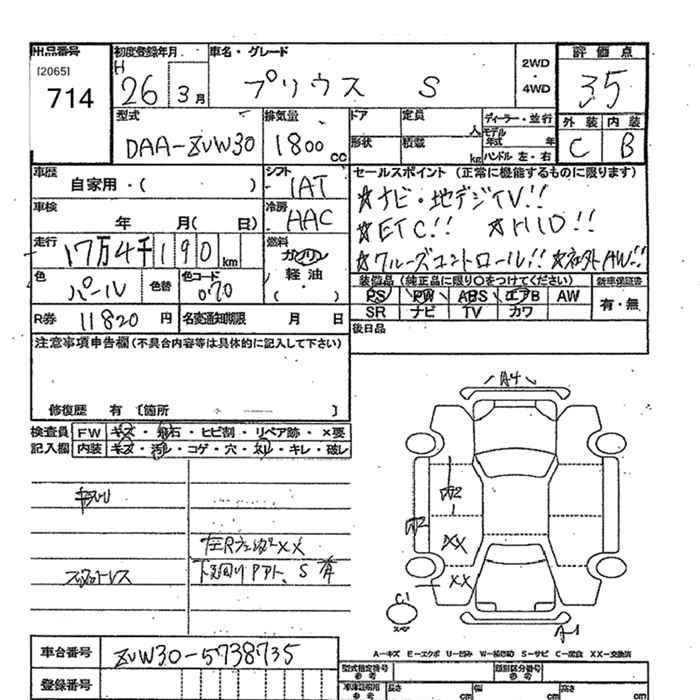 出品番号 初度登録年月 車名・グレード 2WD・4WD 評価点
[2065]
714 H 26 3月 プリウス S 35
型式 排気量 ドア 定員 人 ディーラー・並行 外装 内装
DAA-ZVW30 1800 cc 形状 積載 kg モデル年式 年 ハンドル 左・右 C B
車歴 シフト セールスポイント (正常に機能するものに限ります)
自家用・( ) IAT ☆ナビ・地デジTV!!
車検 冷房
年 月( 日) AAC ☆ETC!! ☆HID!!
走行 燃料
17万4千190km ガソリン ☆クルーズコントロール!! ☆社外AW!!
色 色替 色コード 軽油・( ) 装備品 (純正品に限り○をつけてください) 新車保証書
パール 070 PS PW ABS エアB AW 有・無
R券 11820円 名変通知期限 月 日 SR ナビ TV カワ
後日品
注意事項申告欄(不具合内容等は具体的に記入して下さい)
修復歴 有 [箇所 ]
検査員 FW キズ・飛石・ヒビ割・リペア跡・×要
記入欄 内装 キズ・汚レ・コゲ・穴・スレ・キレ・破レ
A4
XX
XX
左Rフェンダ XX
下廻りアト、S有
C1
スペア
A1
A-キズ E-エクボ U-凹み W-補修跡 S-サビ C-腐食 XX-交換済
車台番号 ZVW30-5738735
登録番号
型式指定番号 参考 類別区分番号 参考
参考 長さ cm 幅 cm 高さ cm